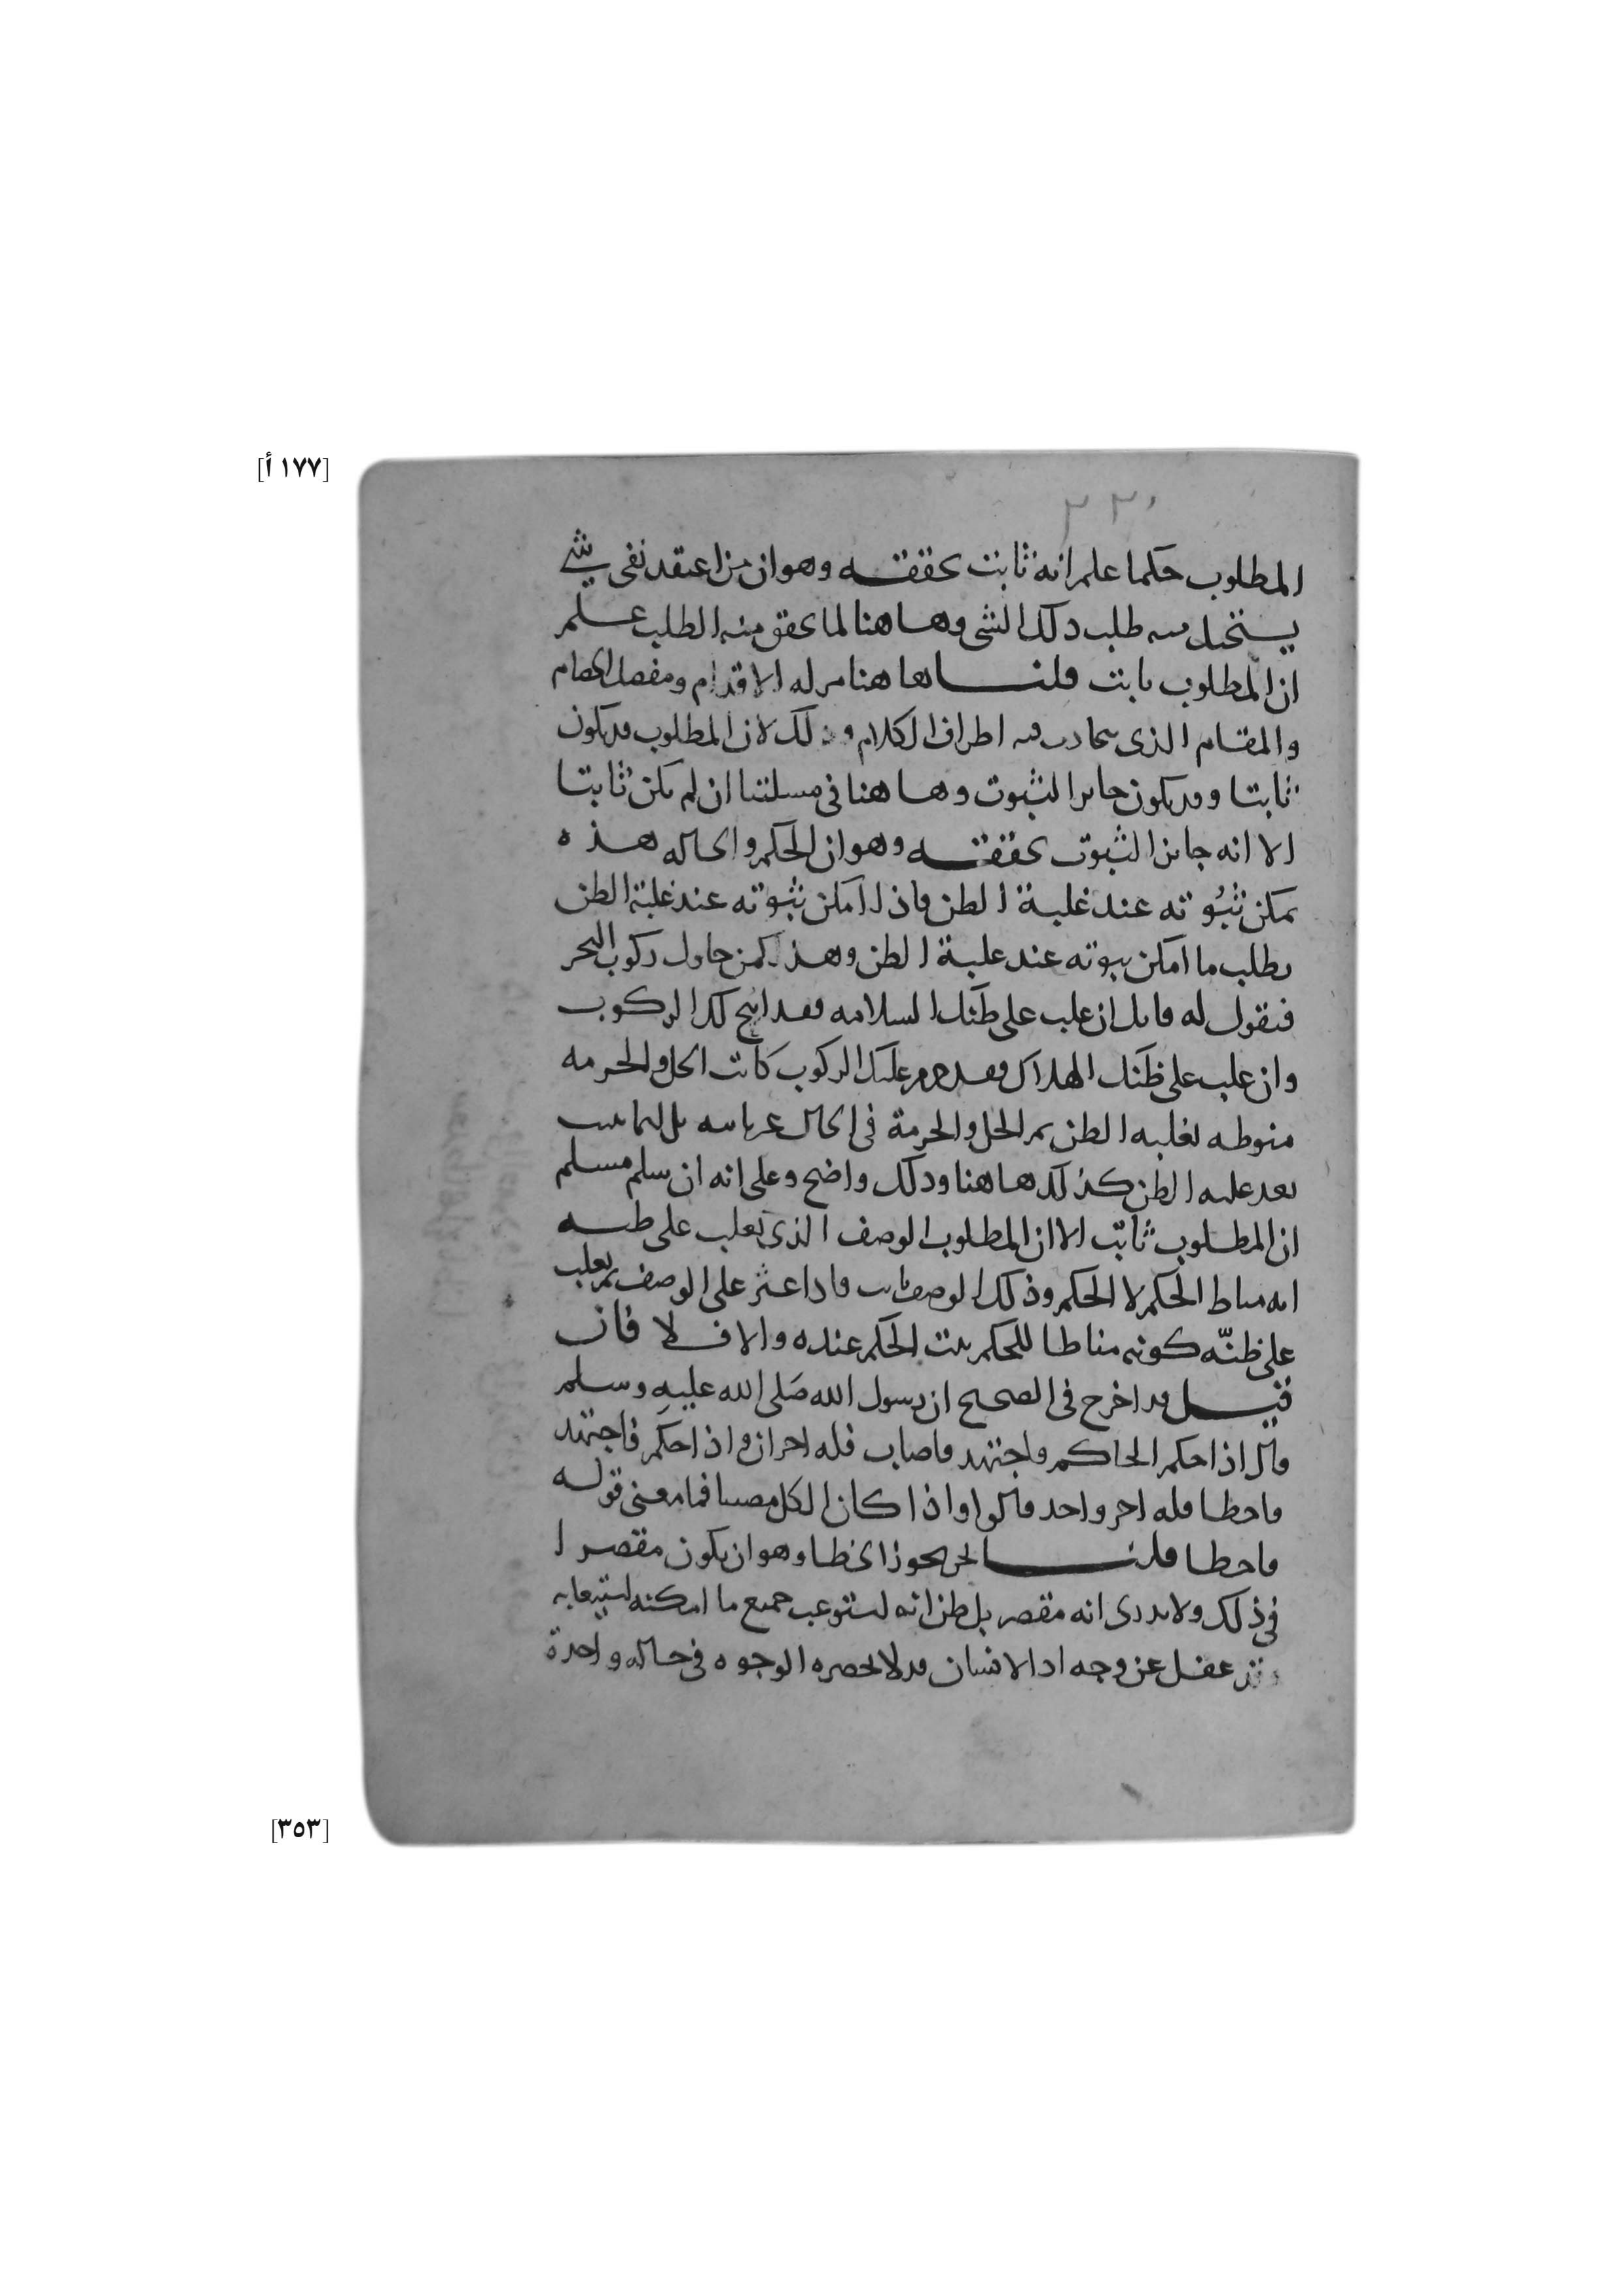 [١٧٧ أ]
المطلوب حكما علم انه ثابت تحققه وهو ان من اعتقد نفى شي
يستحيل منه طلب ذلك الشى وها هنا لما تحقق منه الطلب علم
ان المطلوب ثابت قلنا ها هنا مزلة الاقدام ومفصل الخصام
والمقام الذى تتجاذب فيه اطراف الكلام وذلك لان المطلوب قد يكون
ثابتا وقد يكون جايز الثبوت وها هنا فى مسلتنا ان لم يكن ثابتا
الا انه جايز الثبوت تحققه وهو ان الحكم والحالة هذه
يمكن ثبوته عند غلبة الظن فاذا امكن ثبوته عند غلبة الظن
يطلب ما امكن ثبوته عند غلبة الظن وهذا كمن حاول ركوب البحر
فنقول له قايل ان غلب على ظنك السلامة فقد ابيح لك الركوب
وان غلب على ظنك الهلاك فقد حرم عليك الركوب كانت الحل والحرمة
منوطة بغلبة الظن ثم الحل والحرمة فى الحال غير ثابتة بل انما يثبت
بعد غلبة الظن كذلك ها هنا وذلك واضح وعلى انه ان سلم مسلم
ان المطلوب ثابت الا ان المطلوب الوصف الذى يغلب على ظنه
انه مناط الحكم لا الحكم وذلك الوصف ثابت فاذا عثر على الوصف ثم يغلب
على ظنّه كونه مناطا للحكم يثبت الحكم عنده والا فلا فان
قيل قد اخرج فى الصحيح ان رسول الله صلى الله عليه وسلم
قال اذا حكم الحاكم واجتهد فاصاب فله اجران واذا حكم فاجتهد
فاخطا فله اجر واحد قالوا واذا كان الكل مصيبا فما معنى قوله
فاخطا قلنا نحن نجوز الخطا وهو ان يكون مقصرا
فى ذلك ولا يدرى انه مقصر بل ظن انه استوعب جميع ما امكنه استيعابه
وقد غفل عن وجه اذ الانسان قد لا تحصره الوجوه فى حالة واحدة
[٣٥٣]